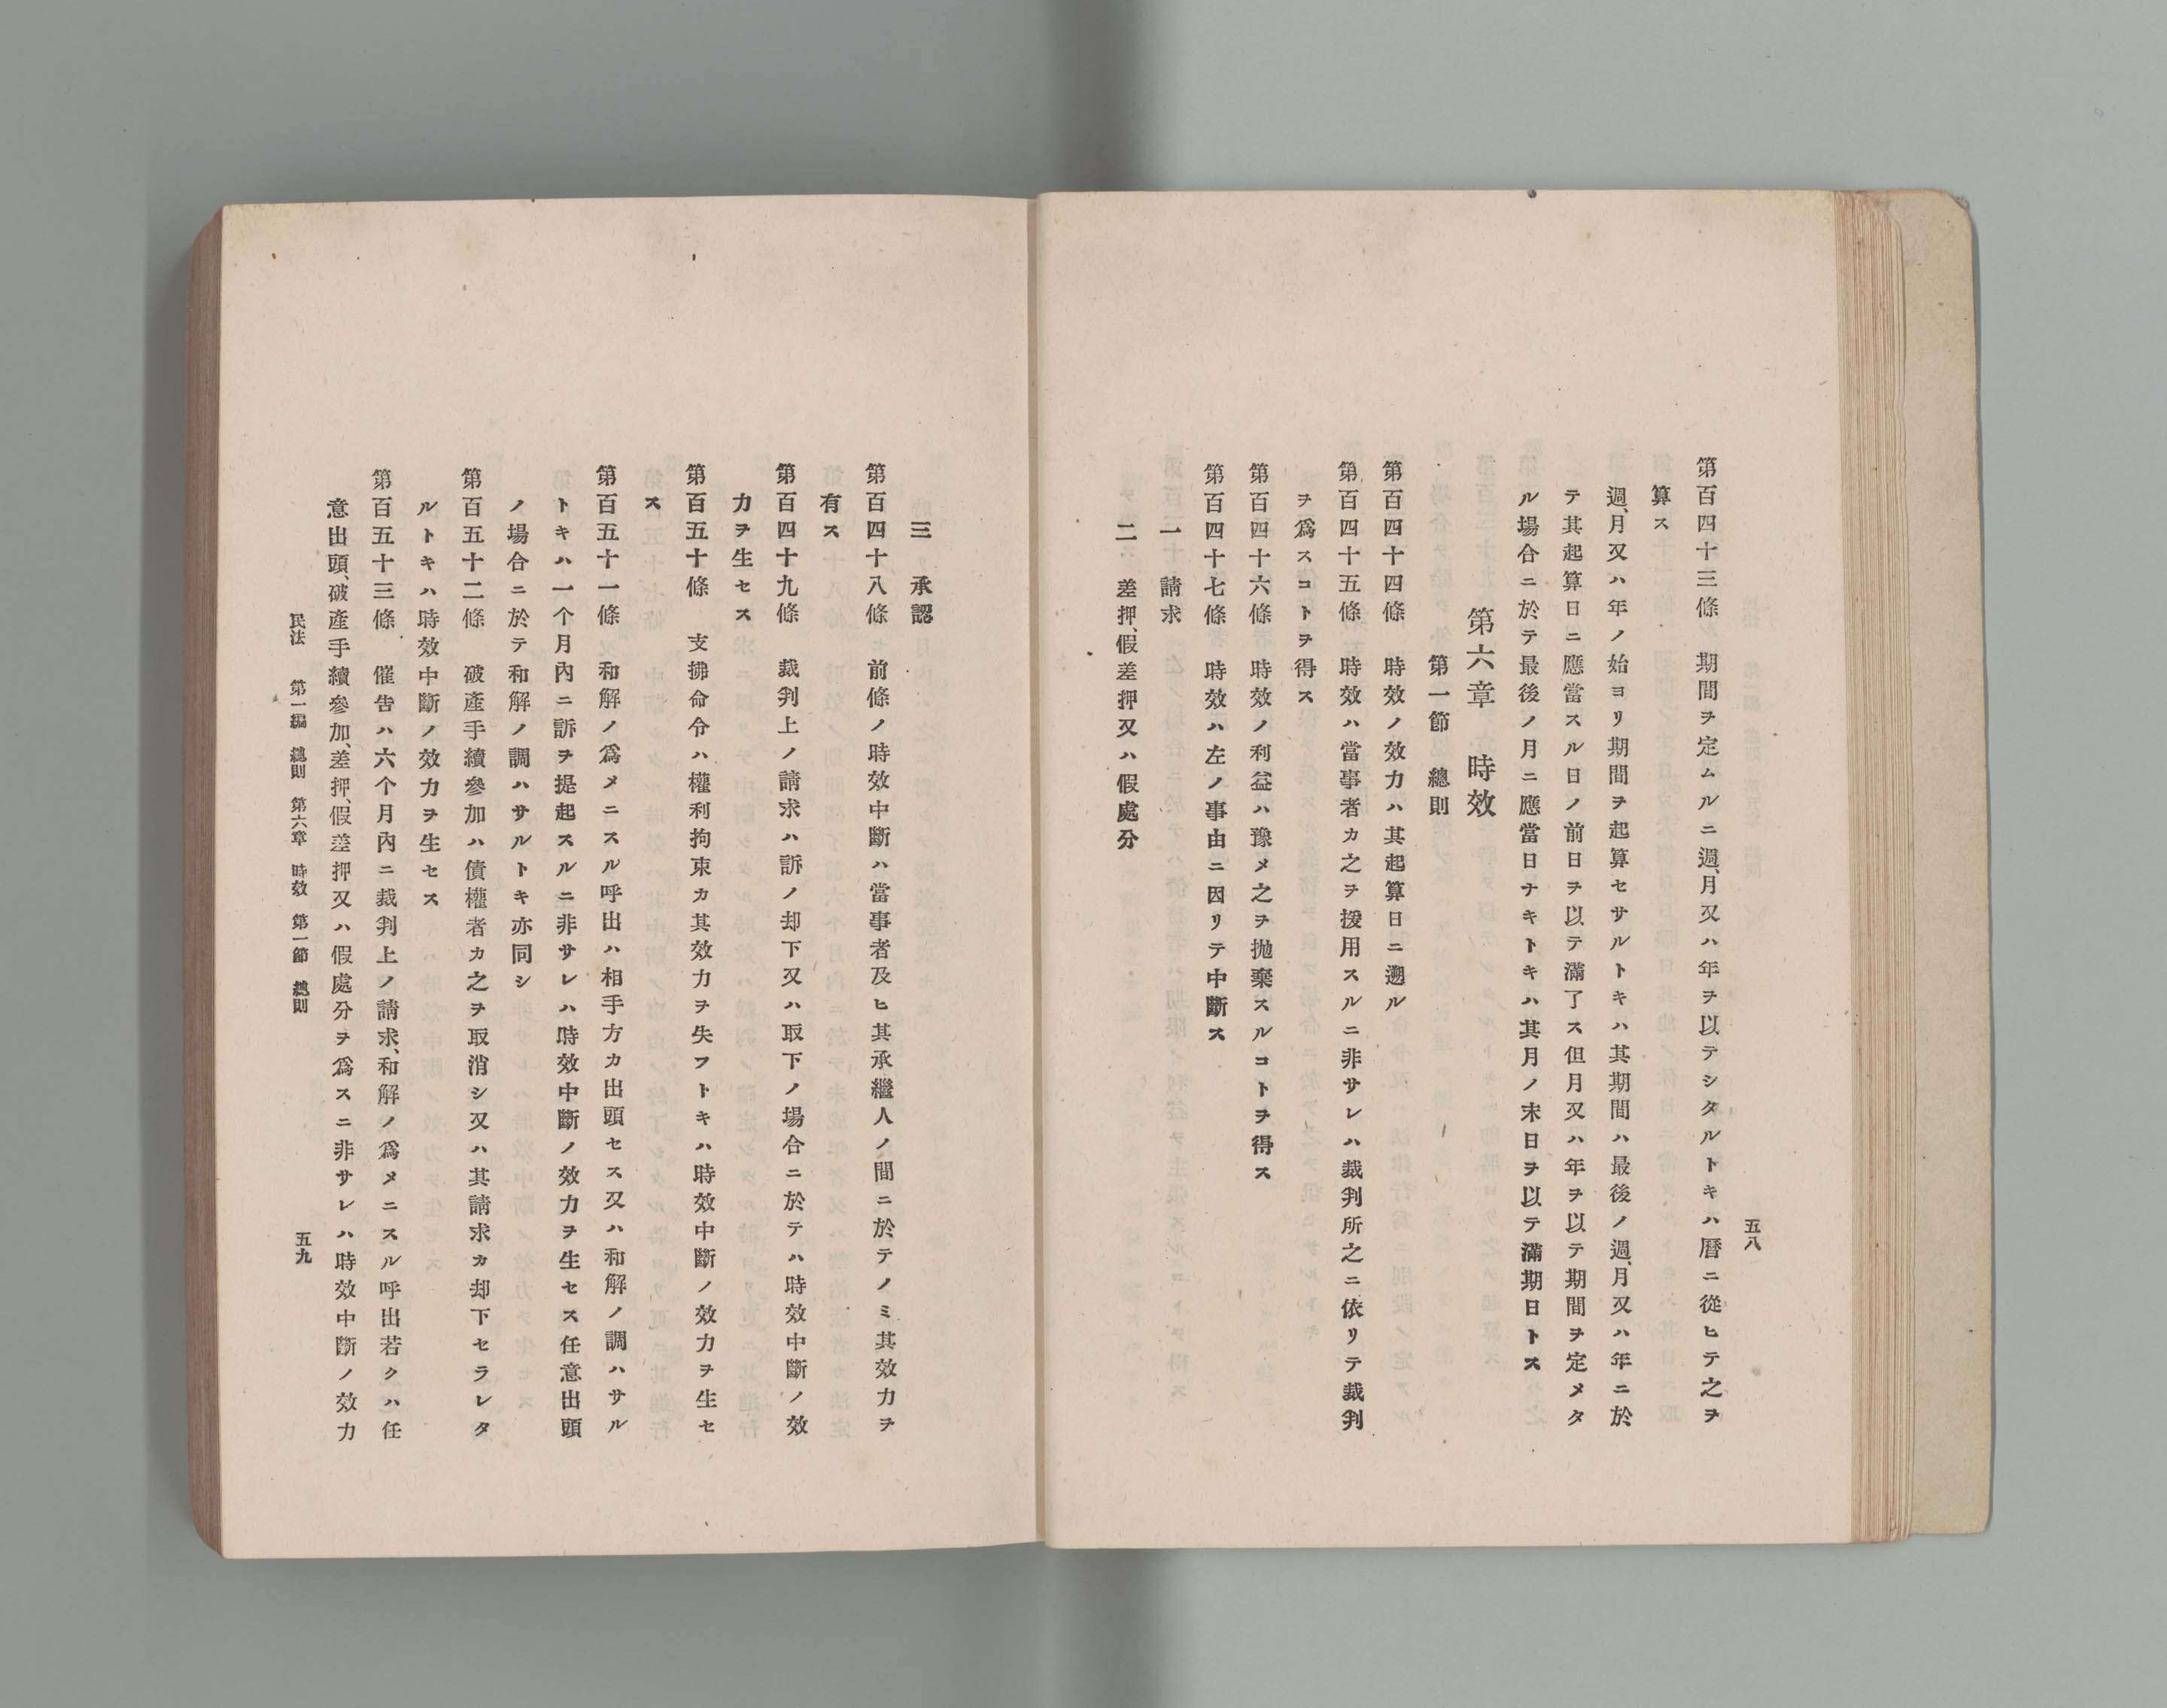 五八
第百四十三條　期間ヲ定ムルニ週、月又ハ年ヲ以テシタルトキハ曆ニ從ヒテ之ヲ
算ス
週、月又ハ年ノ始ヨリ期間ヲ起算セサルトキハ其期間ハ最後ノ週、月又ハ年ニ於
テ其起算日ニ應當スル日ノ前日ヲ以テ滿了ス但月又ハ年ヲ以テ期間ヲ定メタ
ル場合ニ於テ最後ノ月ニ應當日ナキトキハ其月ノ末日ヲ以テ滿期日トス
第六章　時效
第一節　總則
第百四十四條　時效ノ效力ハ其起算日ニ遡ル
第百四十五條　時效ハ當事者カ之ヲ援用スルニ非サレハ裁判所之ニ依リテ裁判
ヲ爲スコトヲ得ス
第百四十六條　時效ノ利益ハ豫メ之ヲ抛棄スルコトヲ得ス
第百四十七條　時效ハ左ノ事由ニ因リテ中斷ス
一　請求
二　差押、假差押又ハ假處分
三　承認
第百四十八條　前條ノ時效中斷ハ當事者及ヒ其承繼人ノ間ニ於テノミ其效力ヲ
有ス
第百四十九條　裁判上ノ請求ハ訴ノ却下又ハ取下ノ場合ニ於テハ時效中斷ノ效
力ヲ生セス
第百五十條　支拂命令ハ權利拘束カ其效力ヲ失フトキハ時效中斷ノ效力ヲ生セ
ス
第百五十一條　和解ノ爲メニスル呼出ハ相手方カ出頭セス又ハ和解ノ調ハサル
トキハ一个月內ニ訴ヲ提起スルニ非サレハ時效中斷ノ效力ヲ生セス任意出頭
ノ場合ニ於テ和解ノ調ハサルトキ亦同シ
第百五十二條　破產手續參加ハ債權者カ之ヲ取消シ又ハ其請求カ却下セラレタ
ルトキハ時效中斷ノ效力ヲ生セス
第百五十三條　催告ハ六个月內ニ裁判上ノ請求、和解ノ爲メニスル呼出若クハ任
意出頭、破產手續參加、差押、假差押又ハ假處分ヲ爲スニ非サレハ時效中斷ノ效力
民法　第一編　總則　第六章　時效　第一節　總則
五九